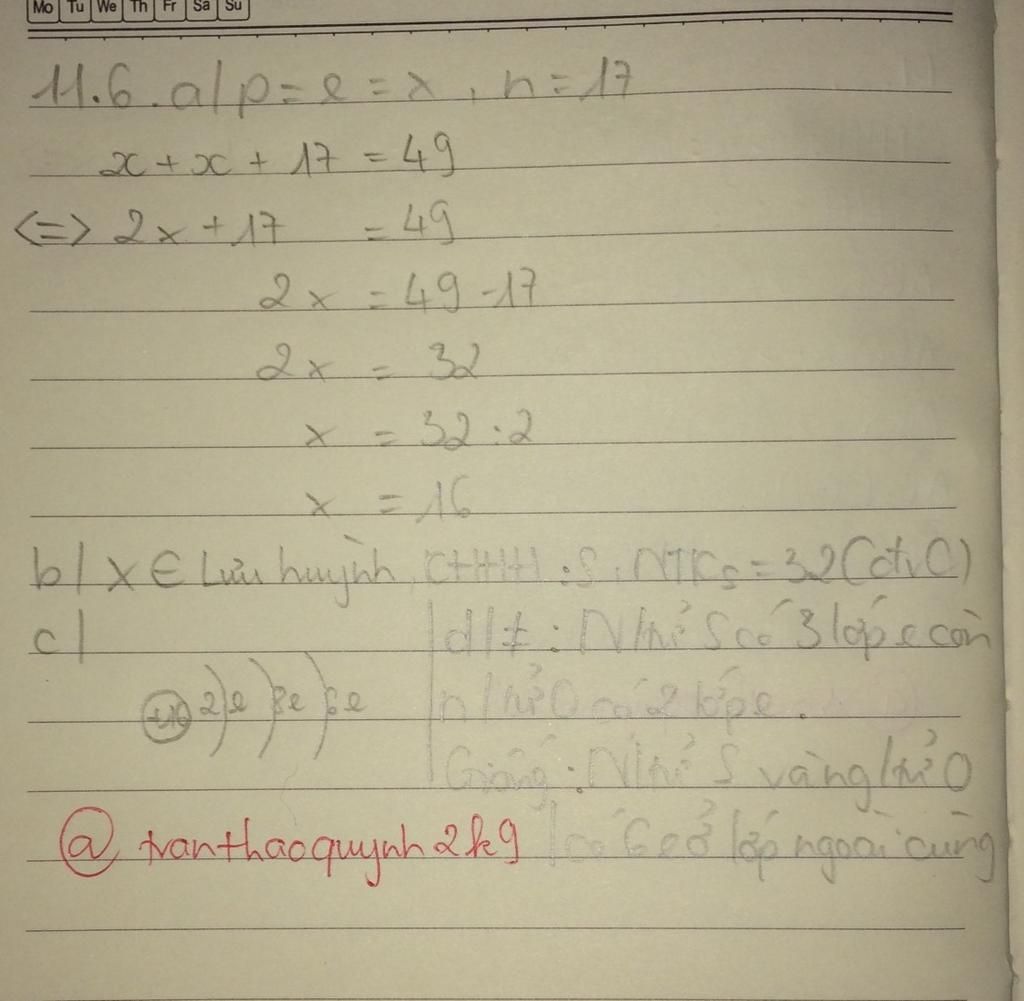 Mo Tu We Th Fr Sa Su
11.6. a/ p = e = x, n = 17
x + x + 17 = 49
<=> 2x + 17 = 49
2x = 49 - 17
2x = 32
x = 32 : 2
x = 16
b/ X ∈ Lưu huỳnh, CHHH : S, NTKs = 32 (đvC)
c/
+16 2e 8e 6e
d/ ≠ : N/tử S có 3 lớp e còn
n/tử O có 2 lớp e.
Giống : N/tử S và ng/tử O
có 6e ở lớp ngoài cùng
@ tranthaoquynh2k9